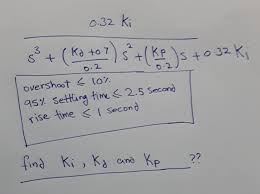 0.32 Ki
s³ + (Kd + 0.7 / 0.2) s² + (Kp / 0.2) s + 0.32 Ki
overshoot ≤ 10%
95% settling time ≤ 2.5 second
rise time ≤ 1 second
find Ki, Kd and Kp ??